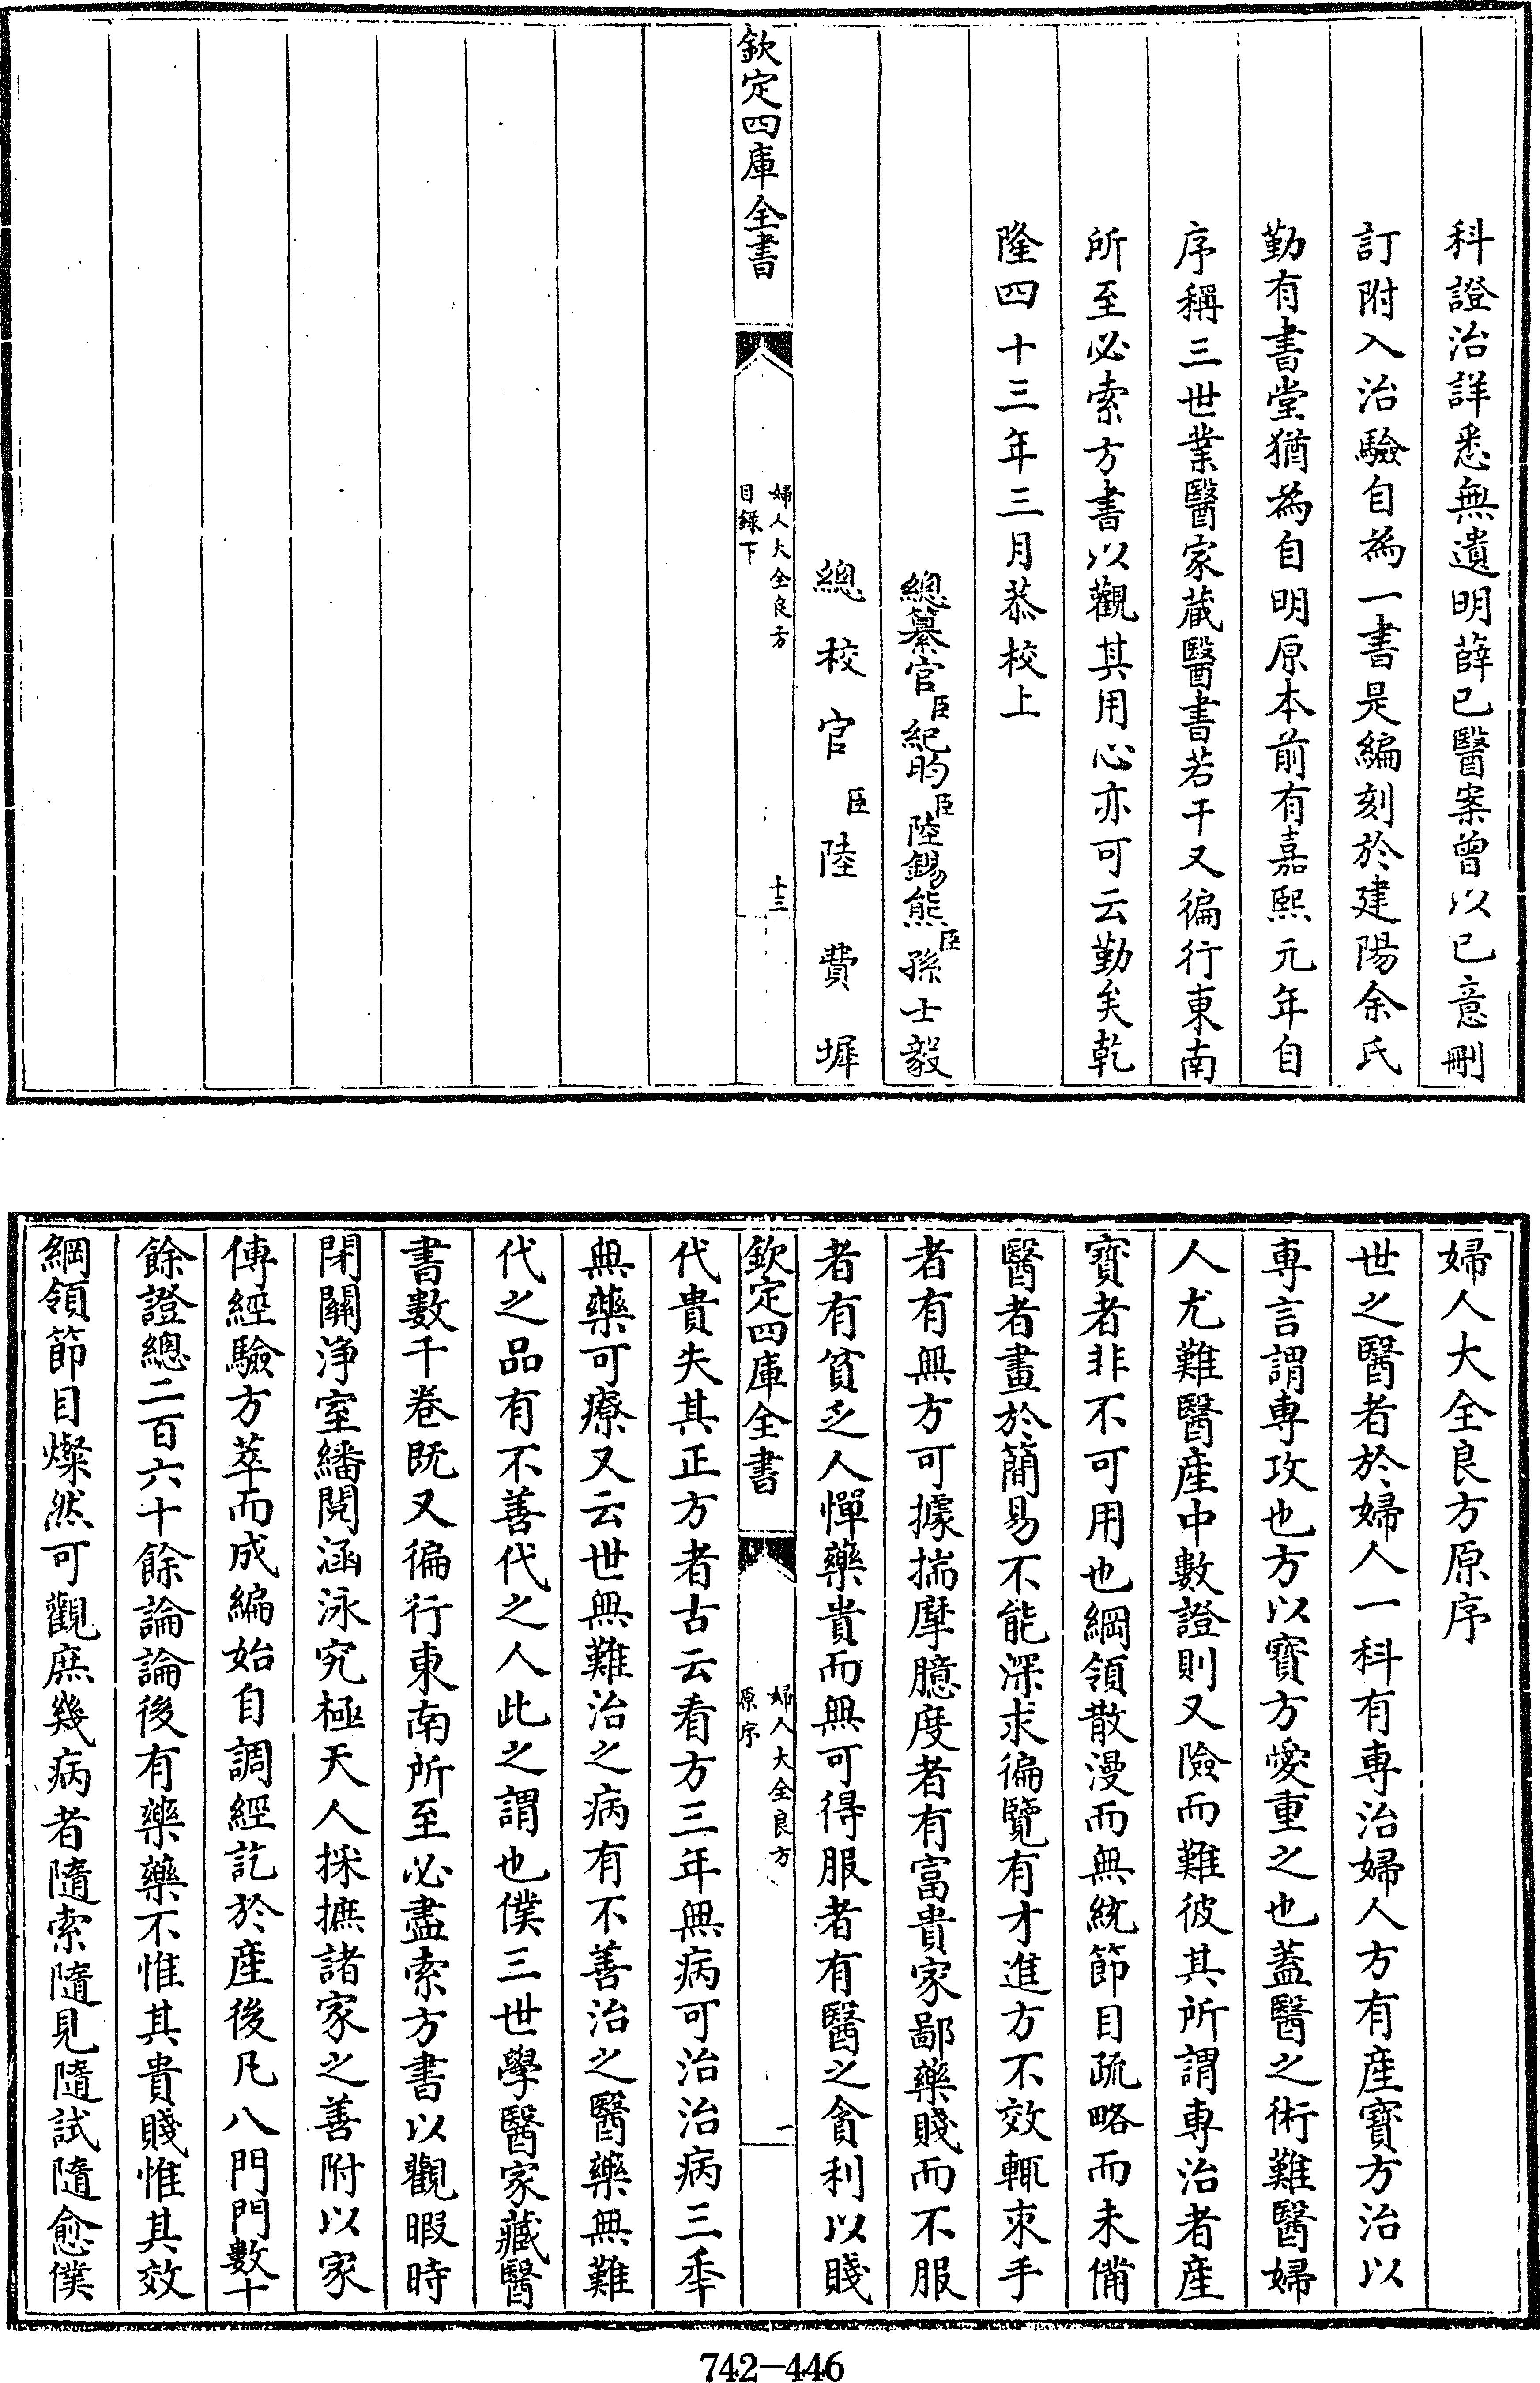 科證治詳悉無遺明薛已醫案曾以已意刪
訂附入治驗自為一書是編刻於建陽余氏
勤有書堂猶為自明原本前有嘉熙元年自
序稱三世業醫家藏醫書若干又徧行東南
所至必索方書以觀其用心亦可云勤矣乾
隆四十三年三月恭校上
總纂官臣紀昀臣陸錫熊臣孫士毅
總校官臣陸費墀
欽定四庫全書
婦人大全良方
目錄下
十三
婦人大全良方原序
世之醫者於婦人一科有專治婦人方有產寶方治以
專言謂專攻也方以寶方愛重之也蓋醫之術難醫婦
人尤難醫產中數證則又險而難彼其所謂專治者產
寶者非不可用也綱領散漫而無統節目疏略而未備
醫者畫於簡易不能深求徧覽有才進方不效輒束手
者有無方可據揣摩臆度者有富貴家鄙藥賤而不服
者有貧乏人憚藥貴而無可得服者有醫之貪利以賤
欽定四庫全書
婦人大全良方
原序
一
代貴失其正方者古云看方三年無病可治治病三年
無藥可療又云世無難治之病有不善治之醫藥無難
代之品有不善代之人此之謂也僕三世學醫家藏醫
書數千卷既又徧行東南所至必盡索方書以觀暇時
閉關淨室繙閱涵泳究極天人採摭諸家之善附以家
傳經驗方萃而成編始自調經訖於產後凡八門門數十
餘證總二百六十餘論論後有藥藥不惟其貴賤惟其效
綱領節目燦然可觀庶幾病者隨索隨見隨試隨愈僕
742-446